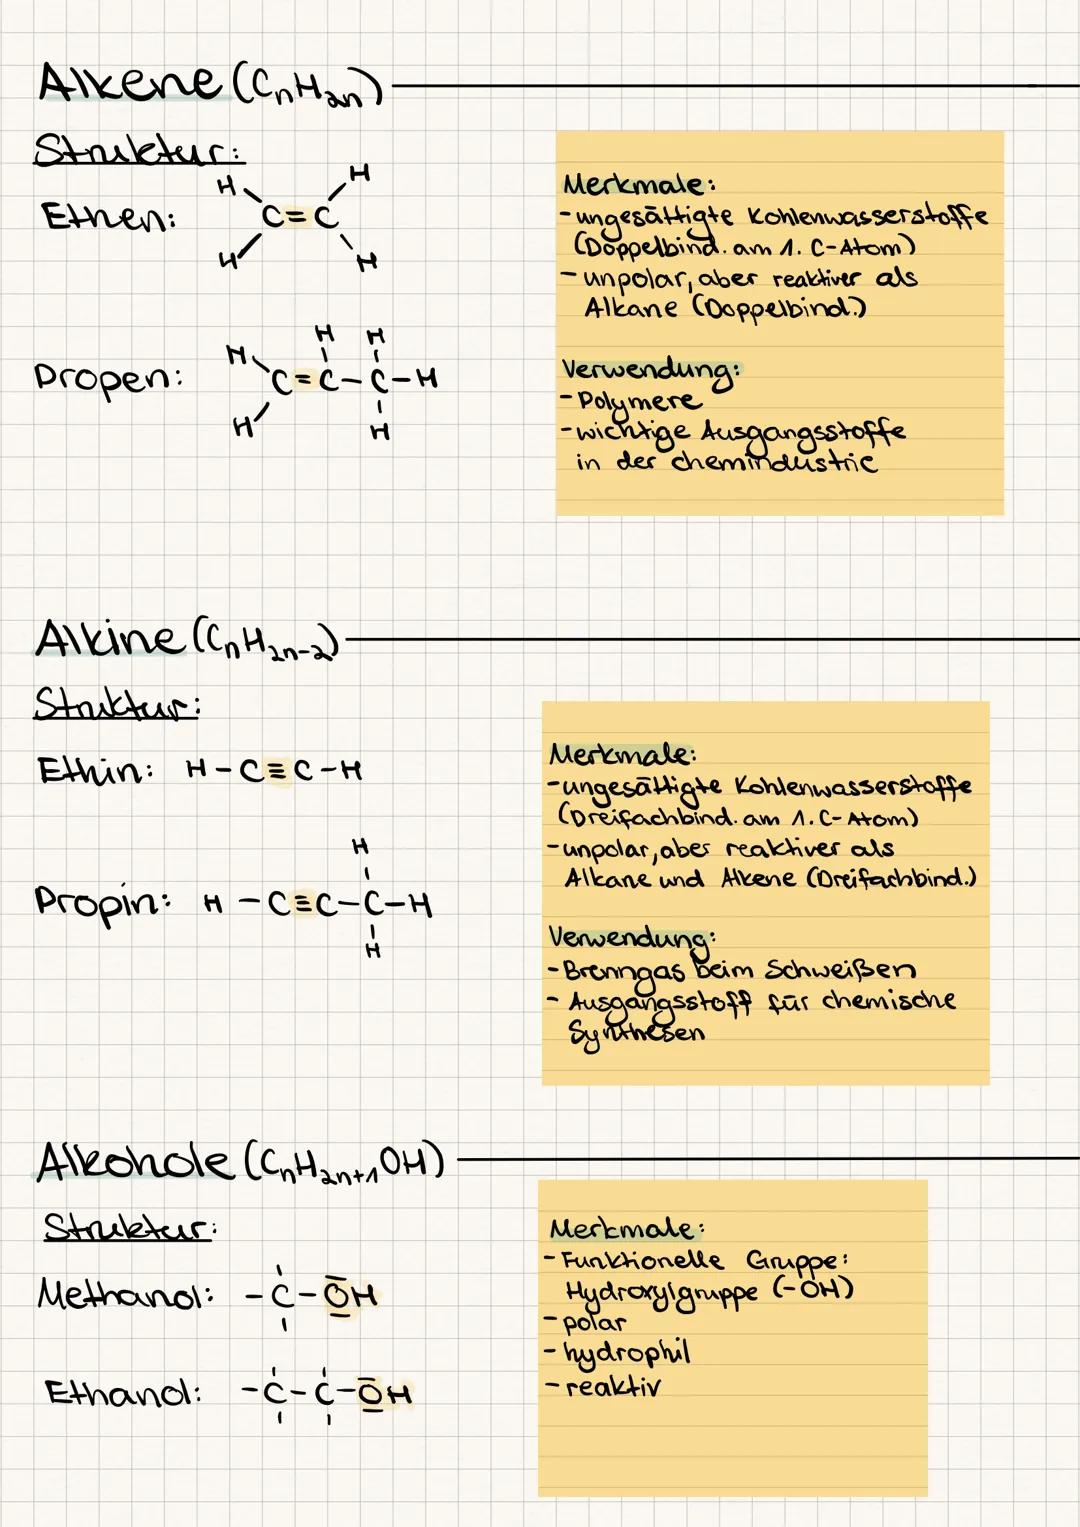 Alkene (CnH2n)
Struktur:
Ethen:
H H
C=C
H H
Merkmale:
-ungesättigte Kohlenwasserstoffe
(Doppelbind. am 1. C-Atom)
- unpolar, aber reaktiver als
Alkane (Doppelbind.)
Propen:
H H H
C=C-C-H
H H
Verwendung:
- Polymere
-wichtige Ausgangsstoffe
in der chemindustrie
Alkine (CnH2n-2)
Struktur:
Ethin: H-C≡C-H
H
Propin: H-C≡C-C-H
H
Merkmale:
-ungesättigte Kohlenwasserstoffe
(Dreifachbind. am 1. C-Atom)
-unpolar, aber reaktiver als
Alkane und Alkene (Dreifachbind.)
Verwendung:
-Brenngas beim Schweißen
- Ausgangsstoff für chemische
Synthesen
Alkohole (CnH2n+1OH)
Struktur:
Methanol: -C-OH
Ethanol: -C-C-OH
Merkmale:
- Funktionelle Gruppe:
Hydroxylgruppe (-OH)
- polar
- hydrophil
- reaktiv